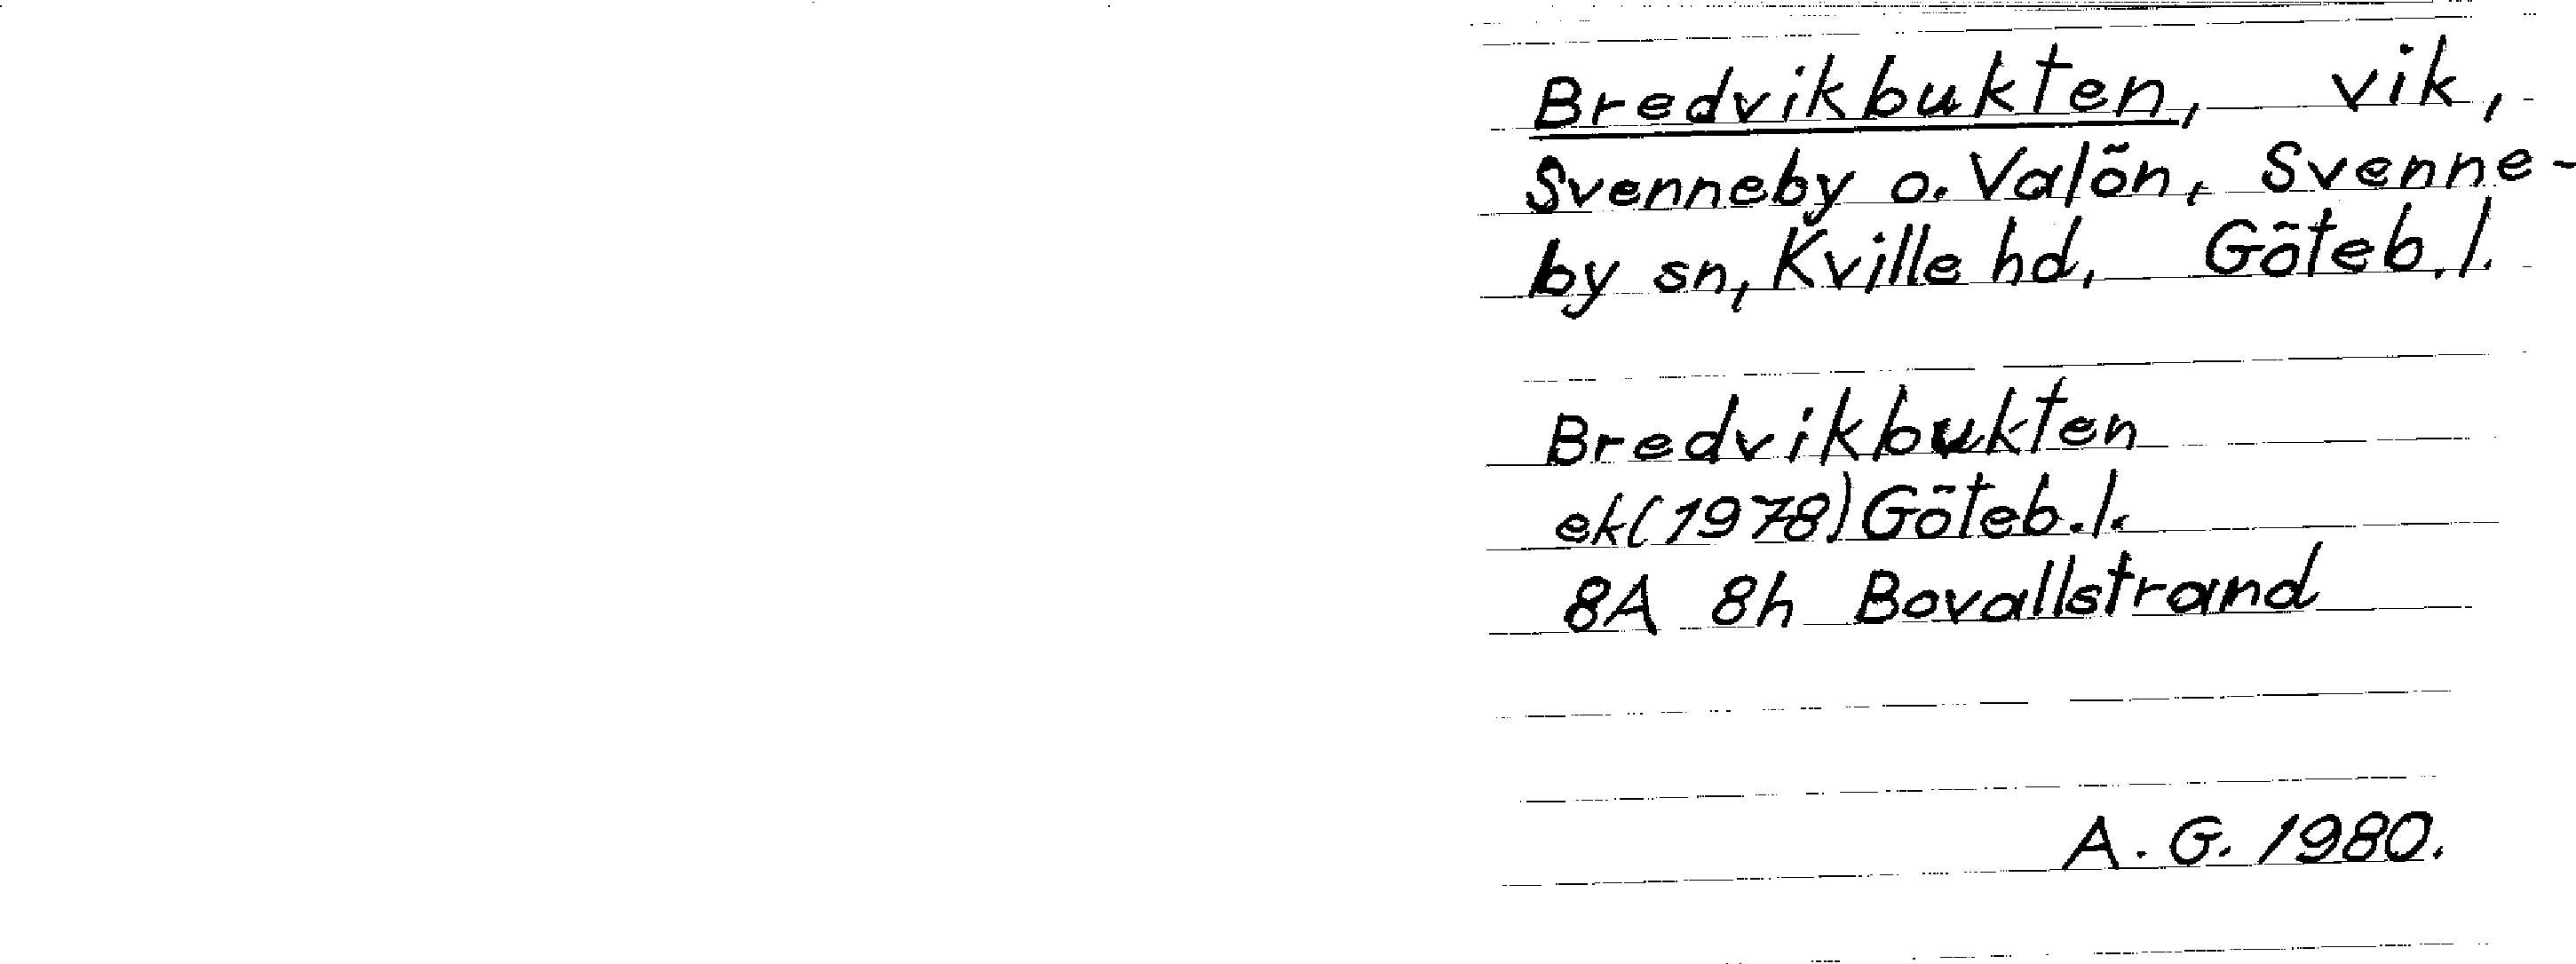 Bredvikbukten, vik,
Svenneby o. Valön, Svenne-
by sn, Kville hd, Göteb. l.
Bredvikbukten
ek (1978) Göteb. l.
8A 8h Bovallstrand
A. G. 1980.